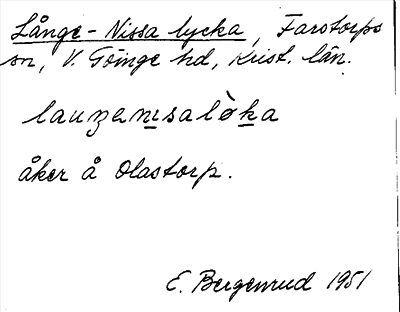 Långe-Nissa lycka, Farstorps
sn, V. Göinge hd, Krist. län.
lauŋenısalòka
åker å Olastorp.
E. Bergenrud 1951